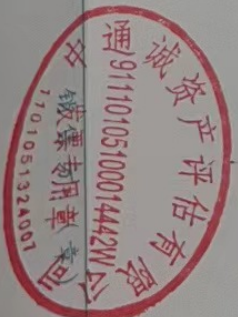 中通诚资产评估有限公司
91110105100014442W
专用章
章）
1101051324007